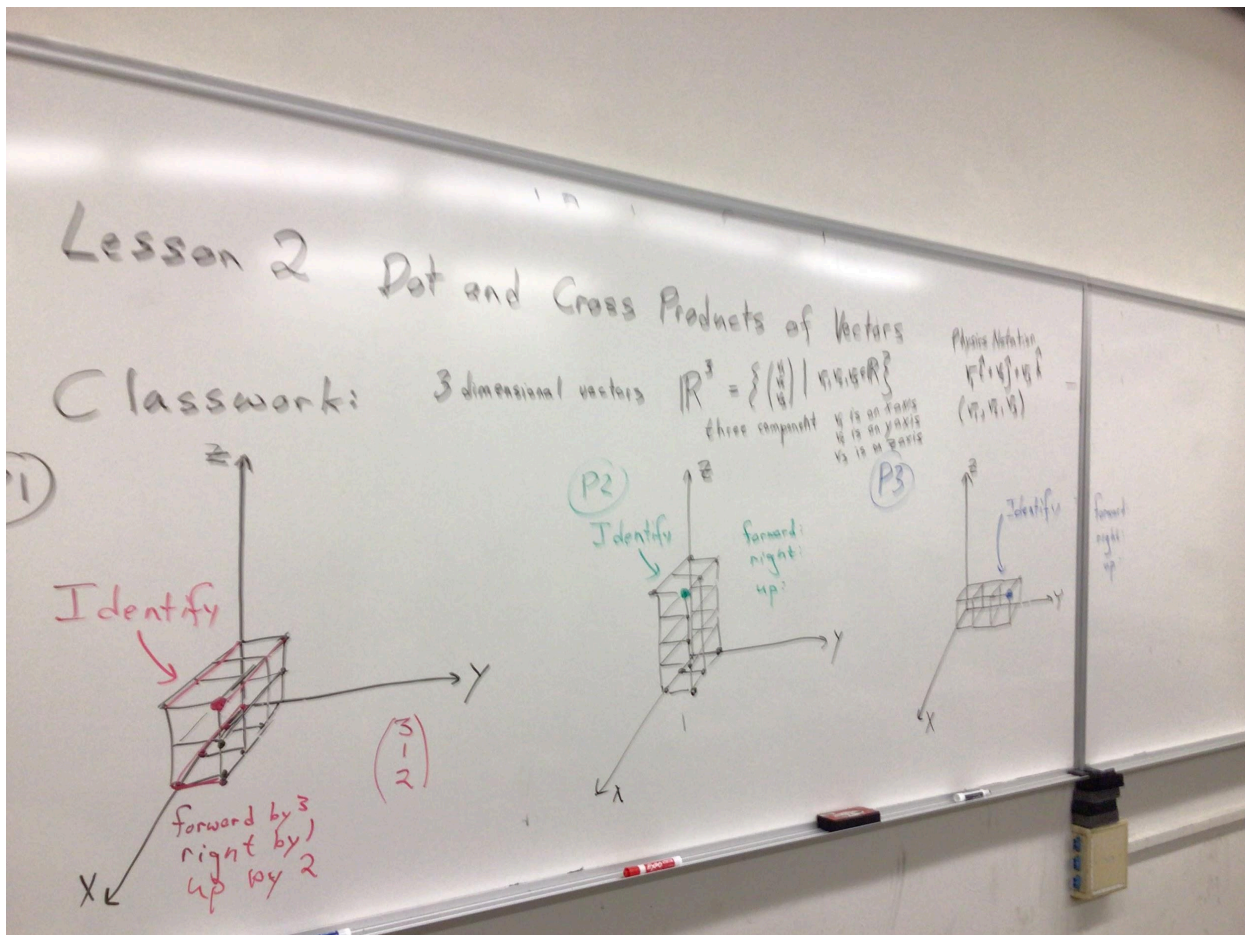 Lesson 2 Dot and Cross Products of Vectors
Classwork: 3 dimensional vectors
three component
v₁ is on x axis
v₂ is on y axis
v₃ is on z axis
Physics Notation
(v₁, v₂, v₃)
P1
Z
Identify
Y
X
forward by 3
right by 1
up by 2
3
1
2
P2
Identify
Z
forward:
right:
up:
Y
X
1
P3
Z
Identify
Y
X
forward:
right:
up: